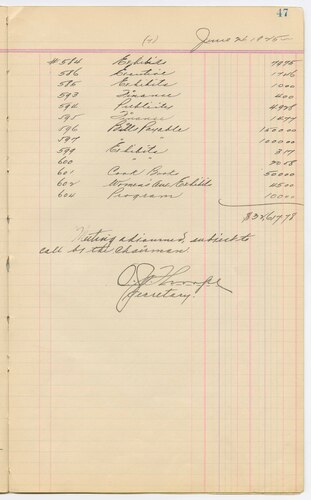 47
(2) June 21 1945
# 584 Exhibits
586 Executive
588 Exhibits 1000
593 Finance 400
594 Publicity
595 Finance 1477
596 Bills Payable 150000
597 " " 100000
599 Exhibits 317
600 " " 2058
601 Cook Books 50000
602 Women's Ave Exhibits 4500
604 Program 10000
Meeting adjourned, subject to
call by the Chairman.
Secretary.